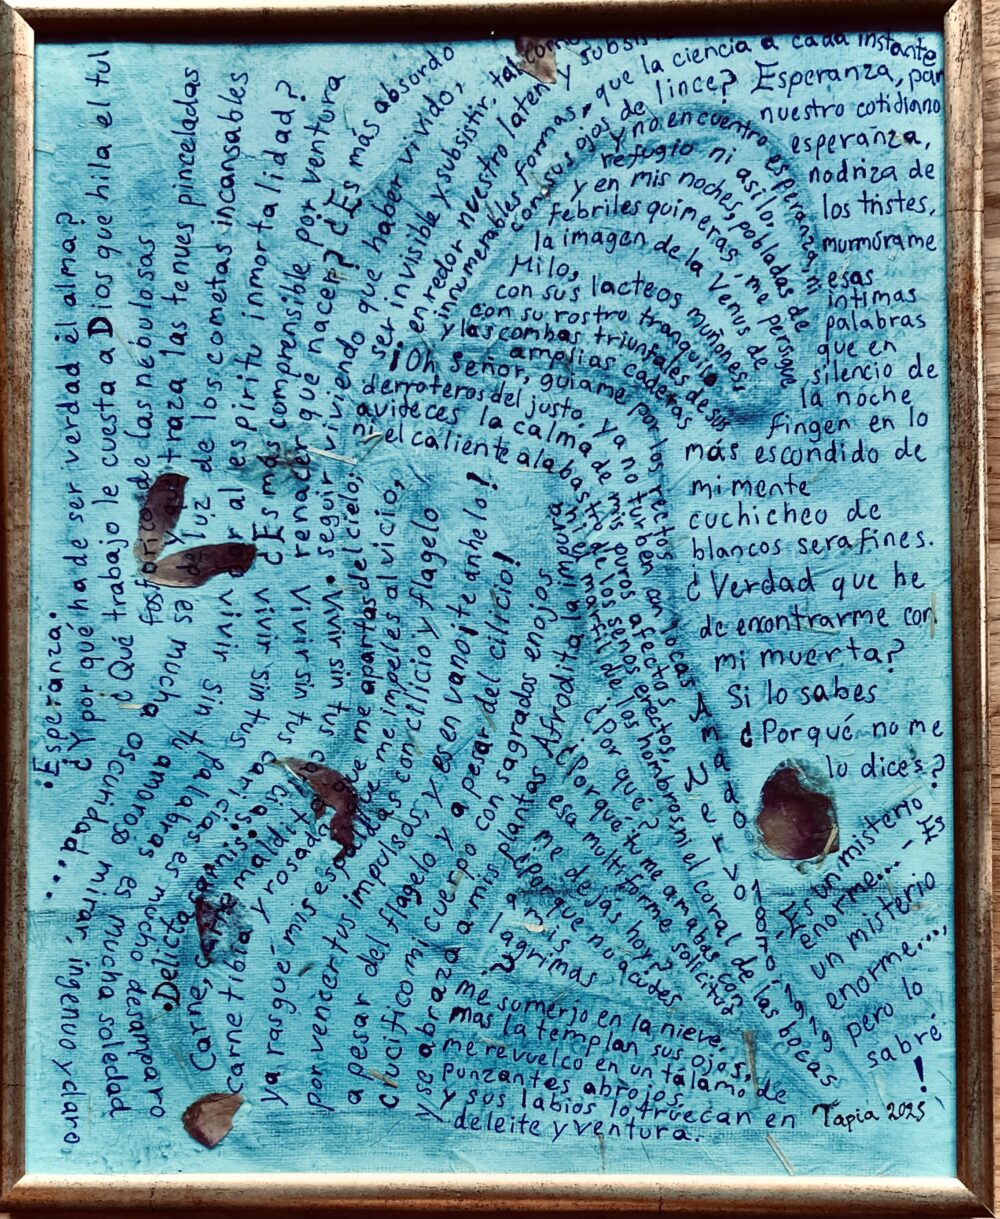 Esperanza.
¿Y por qué ha de ser verdad el alma?
¿Qué trabajo le cuesta a Dios que hila el tul
fosfórico de las nebulosas
y que traza las tenues pinceladas
de luz de los cometas incansables
dar al espíritu inmortalidad?
¿Es más comprensible por ventura
renacer que nacer? ¿Es más absurdo
seguir viviendo que haber vivido,
ser invisible y subsistir, tal como
en redor nuestro laten y subsis
innumerables formas, que la ciencia a cada instante
con sus ojos de lince? Esperanza, pan
nuestro cotidiano
esperanza,
nodriza de
los tristes,
murmúrame
esas
íntimas
palabras
que en
silencio de
la noche
fingen en lo
más escondido de
mi mente
cuchicheo de
blancos serafines.
¿Verdad que he
de encontrarme con
mi muerta?
Si lo sabes
¿Porqué no me
lo dices?
Vivir sin tus caricias es mucho desamparo
vivir sin tus palabras es mucha soledad
vivir sin tu amoroso mirar, ingenuo y claro,
es mucha oscuridad...
Delicta carnis.
Carne, carne maldita que me apartas del cielo;
carne tibia y rosada que me impeles al vicio,
ya rasgué mis espaldas con cilicio y flagelo
por vencer tus impulsos, y es en vano ¡te anhelo!
a pesar del flagelo y a pesar del cilicio!
Crucifico mi cuerpo con sagrados enojos
y se abraza a mis plantas Afrodita la impura
me sumerjo en la nieve,
mas la templan sus ojos,
me revuelco en un tálamo de
punzantes abrojos,
y sus labios lo truecan en
deleite y ventura.
y no encuentro esperanza, ni
refugio ni asilo,
y en mis noches, pobladas de
febriles quimeras, me persigue
la imagen de la Venus de
Milo,
con sus lacteos muñones
con su rostro tranquilo
y las combas triunfales de sus
amplias caderas
¡Oh Señor, guíame por los rectos
derroteros del justo. ya no turben an locas
avideces la calma de mis puros afectos
ni el caliente alabastro de los senos erectos,
ni el marfil de los hombros, ni el coral de las bocas
Amado Nervo 1870, 1919
¿Por qué?
¿Porque tu me amabas con
esa multiforme solicitud
me dejas hoy?
¿porque no acudes
a mis
lagrimas
?
Es un misterio
enorme...' Es
un misterio
enorme....,
pero lo
sabré
!
Tapia 2025